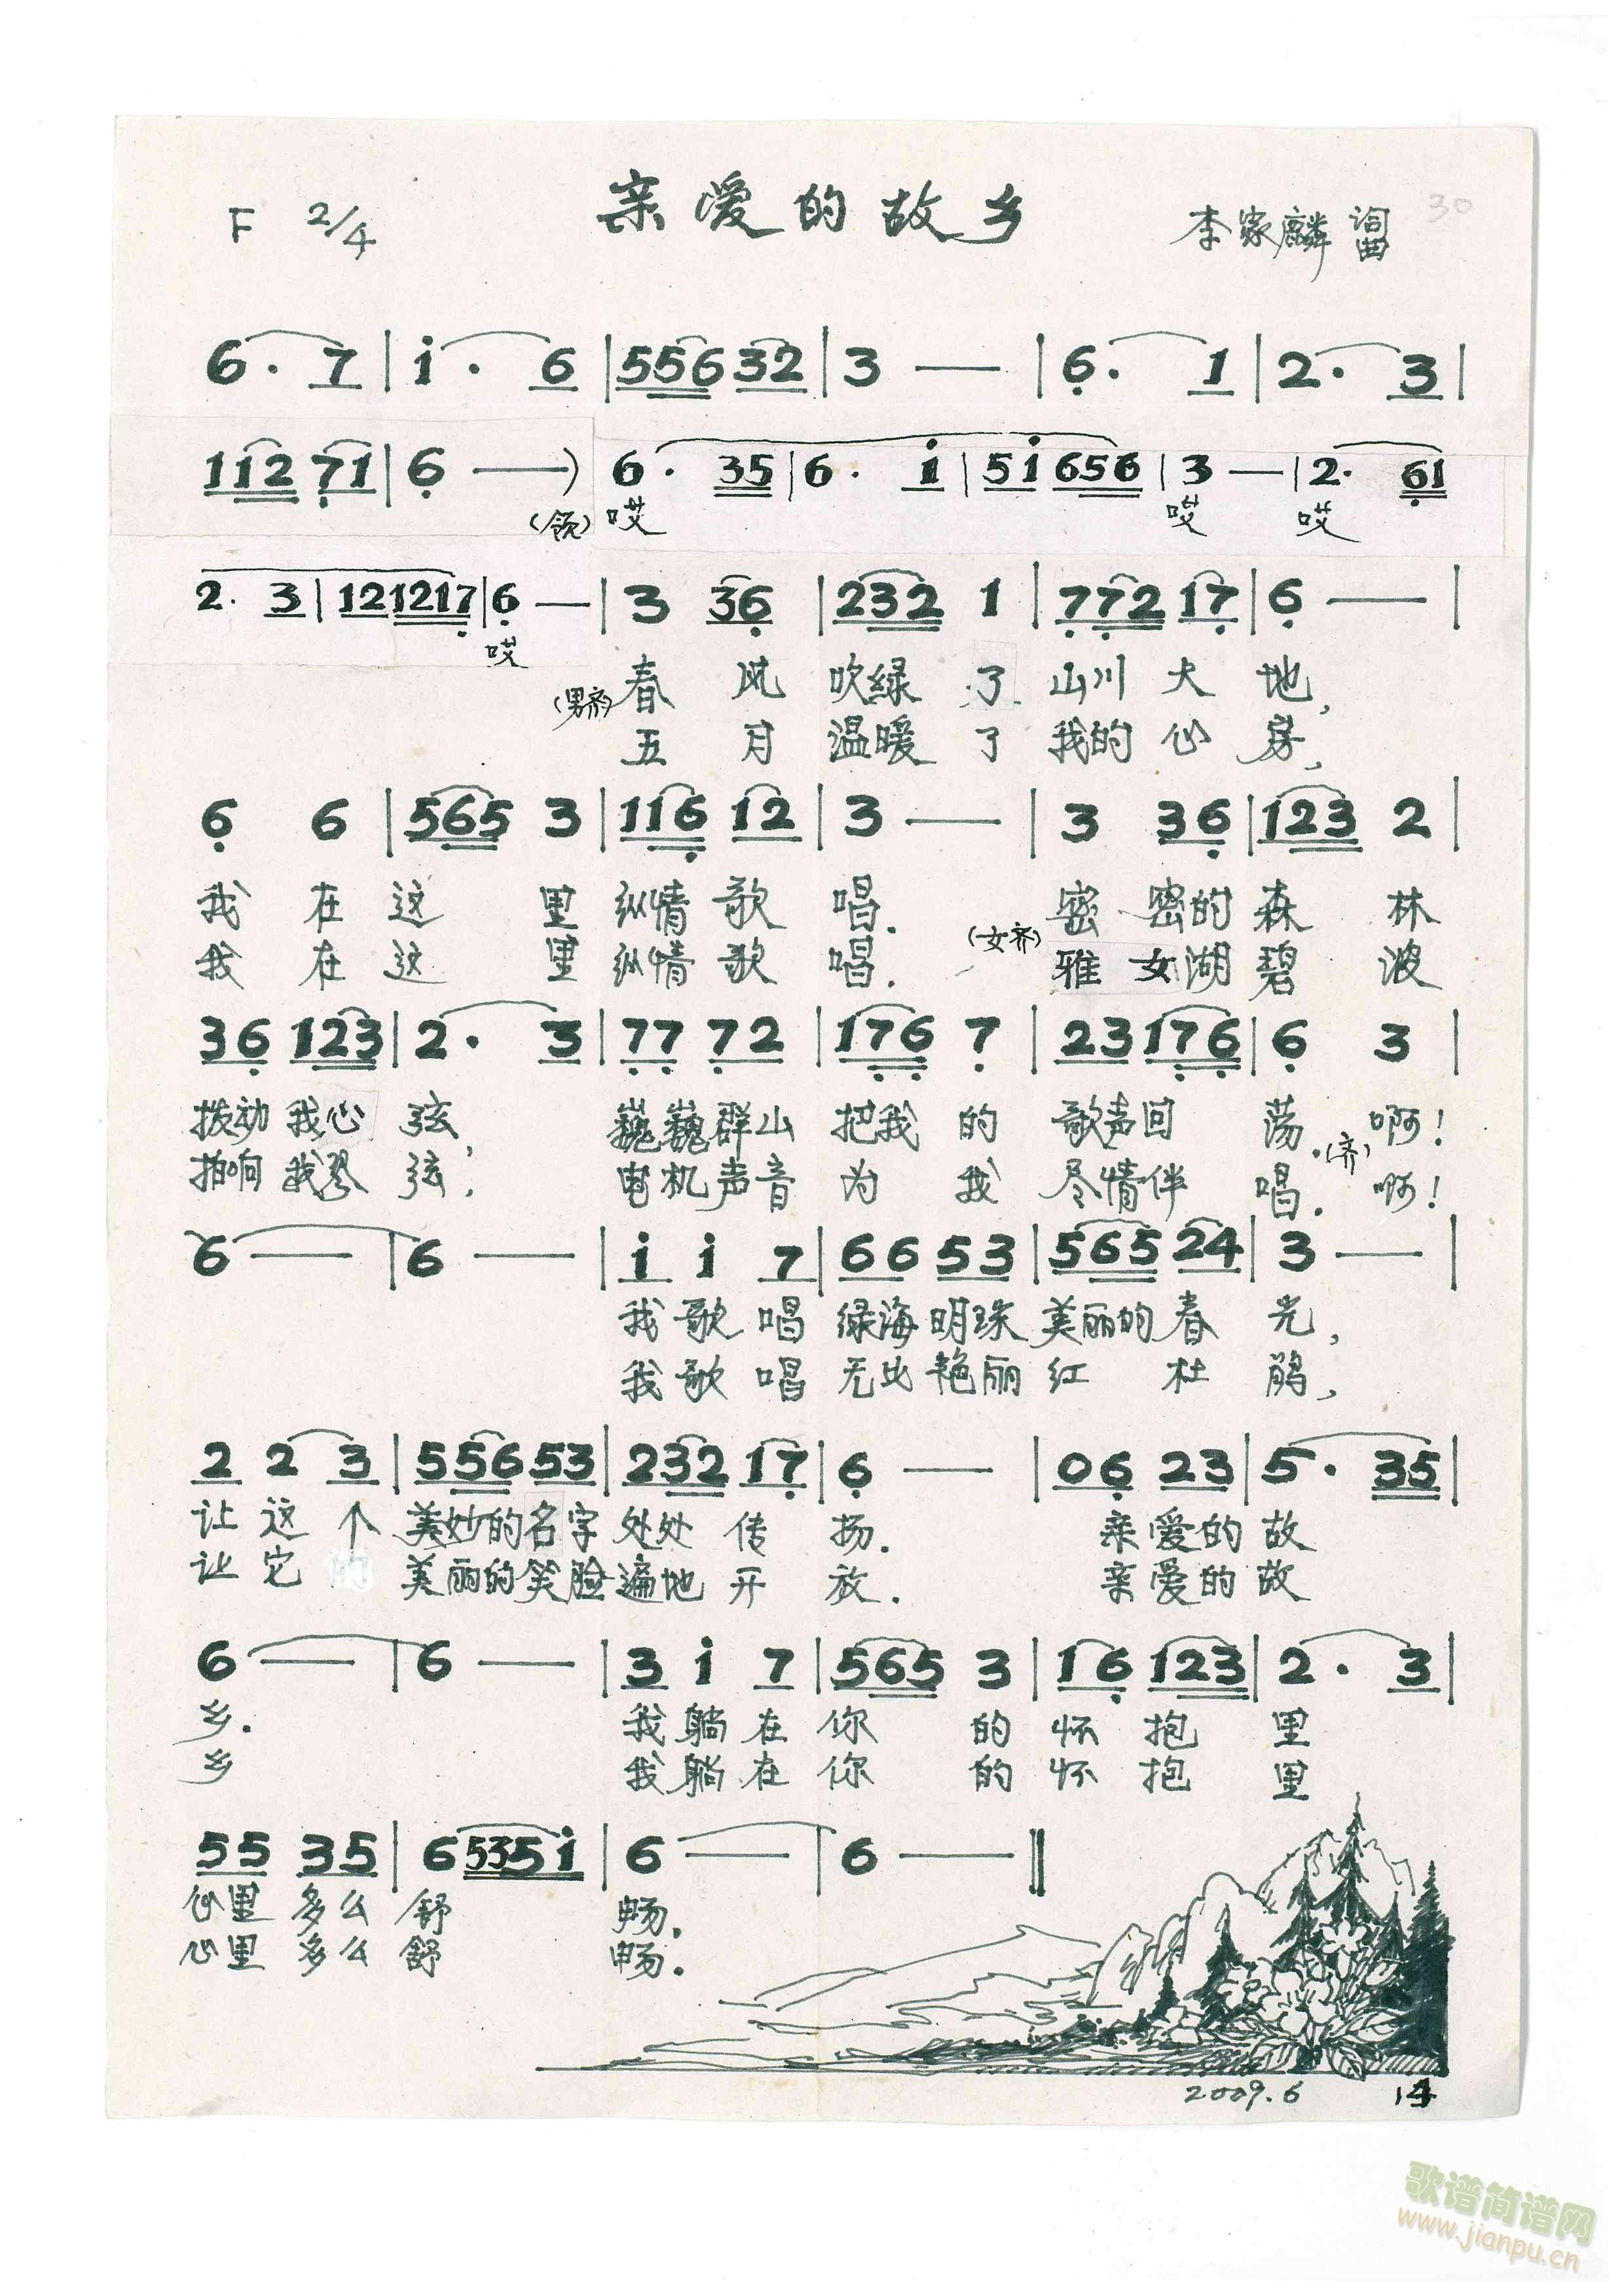 亲爱的故乡
F 2/4
李家麟 词曲
30
6· 7 | i· 6 | 556 32 | 3 — | 6· 1 | 2· 3 |
112 71 | 6 — ) 6· 35 | 6· i | 5i 656 | 3 — | 2· 61
(领) 哎 哎 哎
2· 3 | 12 1217 | 6 — | 3 36 | 232 1 | 772 17 | 6 — |
哎
(男齐) 春 风 吹绿 了 山川 大 地,
五 月 温暖 了 我的 心 房,
6 6 | 565 3 | 116 12 | 3 — | 3 36 | 123 2 |
我 在 这 里 纵情 歌 唱. 密 密的 森 林
(女齐)
我 在 这 里 纵情 歌 唱. 雅 女湖 碧 波
36 123 | 2· 3 | 77 72 | 176 7 | 23 176 | 6 3 |
拨动 我心 弦, 巍巍群山 把我 的 歌声回 荡. (齐) 啊!
拍响 我琴 弦, 电机声音 为 我 尽情伴 唱. 啊!
6 — | 6 — | i i 7 | 66 53 | 565 24 | 3 — |
我 歌 唱 绿海 明珠 美丽的 春 光,
我 歌 唱 无比 艳丽 红 杜 鹃,
2 2 3 | 556 53 | 232 17 | 6 — | 06 23 | 5· 35 |
让 这 个 美妙的名字 处处 传 扬. 亲 爱的 故
让 它 的 美丽的笑脸 遍地 开 放. 亲 爱的 故
6 — | 6 — | 3 i 7 | 565 3 | 16 123 | 2· 3 |
乡. 我 躺 在 你 的 怀 抱 里
乡 我 躺 在 你 的 怀 抱 里
55 35 | 6 535i | 6 — | 6 — ‖
心里 多么 舒 畅.
心里 多么 舒 畅.
2009.6 14
歌谱简谱网
www.jianpu.cn